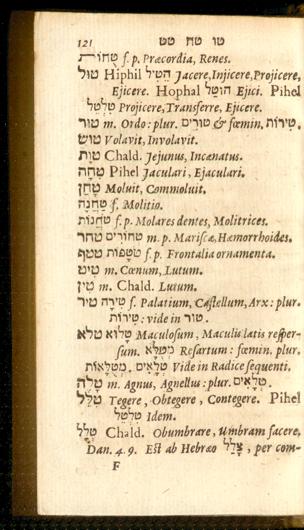 121 טו טח טט
טֻחוֹת f. p. Præcordia, Renes.
טוּל Hiphil הֵטִיל Jacere, Injicere, Projicere,
Ejicere. Hophal הוּטַל Ejici. Pihel
טִלְטֵל Projicere, Transferre, Ejicere.
טוּר m. Ordo: plur. טוּרִים & fœmin. טִירוֹת.
טוּשׂ Volavit, Involavit.
טְוָת Chald. Jejunus, Incœnatus.
טָחָה Pihel Jaculari, Ejaculari.
טָחַן Moluit, Commoluit.
טַחֲנָה f. Molitio.
טֹחֲנוֹת f. p. Molares dentes, Molitrices.
טחר טְחוֹרִים m. p. Mariscæ, Hæmorrhoides.
טטף טֹטָפוֹת f. p. Frontalia ornamenta.
טִיט m. Cœnum, Lutum.
טִין m. Chald. Lutum.
טיר טִירָה f. Palatium, Castellum, Arx: plur.
טִירוֹת: vide in טור.
טלא טָלוּא Maculosum, Maculis latis resper-
sum. מְטֻלָּא Resartum: fœmin. plur.
טְלָאִים. מְטֻלָּאוֹת Vide in Radice sequenti.
טָלֶה m. Agnus, Agnellus: plur. טְלָאִים.
טָלַל Tegere, Obtegere, Contegere. Pihel
טִלְטֵל Idem.
טְלַל Chald. Obumbrare, Umbram facere,
Dan. 4. 9. Est ab Hebræo צָלַל, per com-
F